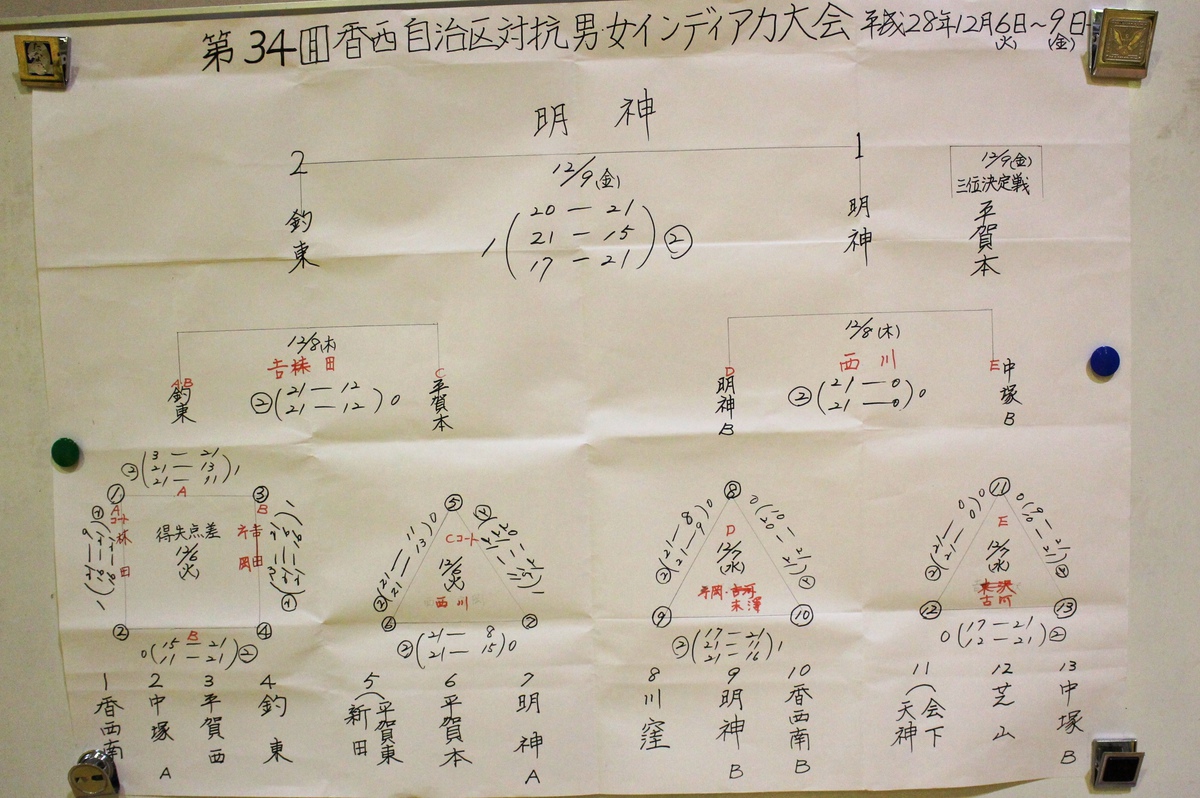 第34回香西自治区対抗男女インディアカ大会 平成28年12月6日~9日
(火) (金)
明 神
2
1
12/9(金)
12/9(金)
三位決定戦
釣東
明神
平賀本
1 ( 20 — 21
21 — 15
17 — 21 ) ②
12/8(木)
12/8(木)
西 川
AB
釣東
② ( 21 — 12
21 — 12 ) 0
C
平賀本
D
明神B
② ( 21 — 0
21 — 0 ) 0
E
中塚B
② ( 3 — 21
21 — 13
21 — 11 ) 1
① A ③
Aコート
林田
得失点差
12/6
(火)
B
② B ④
0 ( 15 — 21
11 — 21 ) ②
⑤
Cコート
12/6
(火)
西川
⑥ ⑦
② ( 21 — 8
21 — 15 ) 0
⑧
D
12/7
(水)
⑨ ⑩
② ( 17 — 21
21 — 11
21 — 16 ) 1
⑪
E
12/7
(水)
古河
⑫ ⑬
0 ( 17 — 21
12 — 21 ) ②
1 香西南
2 中塚A
3 平賀西
4 釣東
5 (平賀東
新田
6 平賀本
7 明神A
8 川窪
9 明神B
10 香西南B
11 (会下
天神
12 芝山
13 中塚B